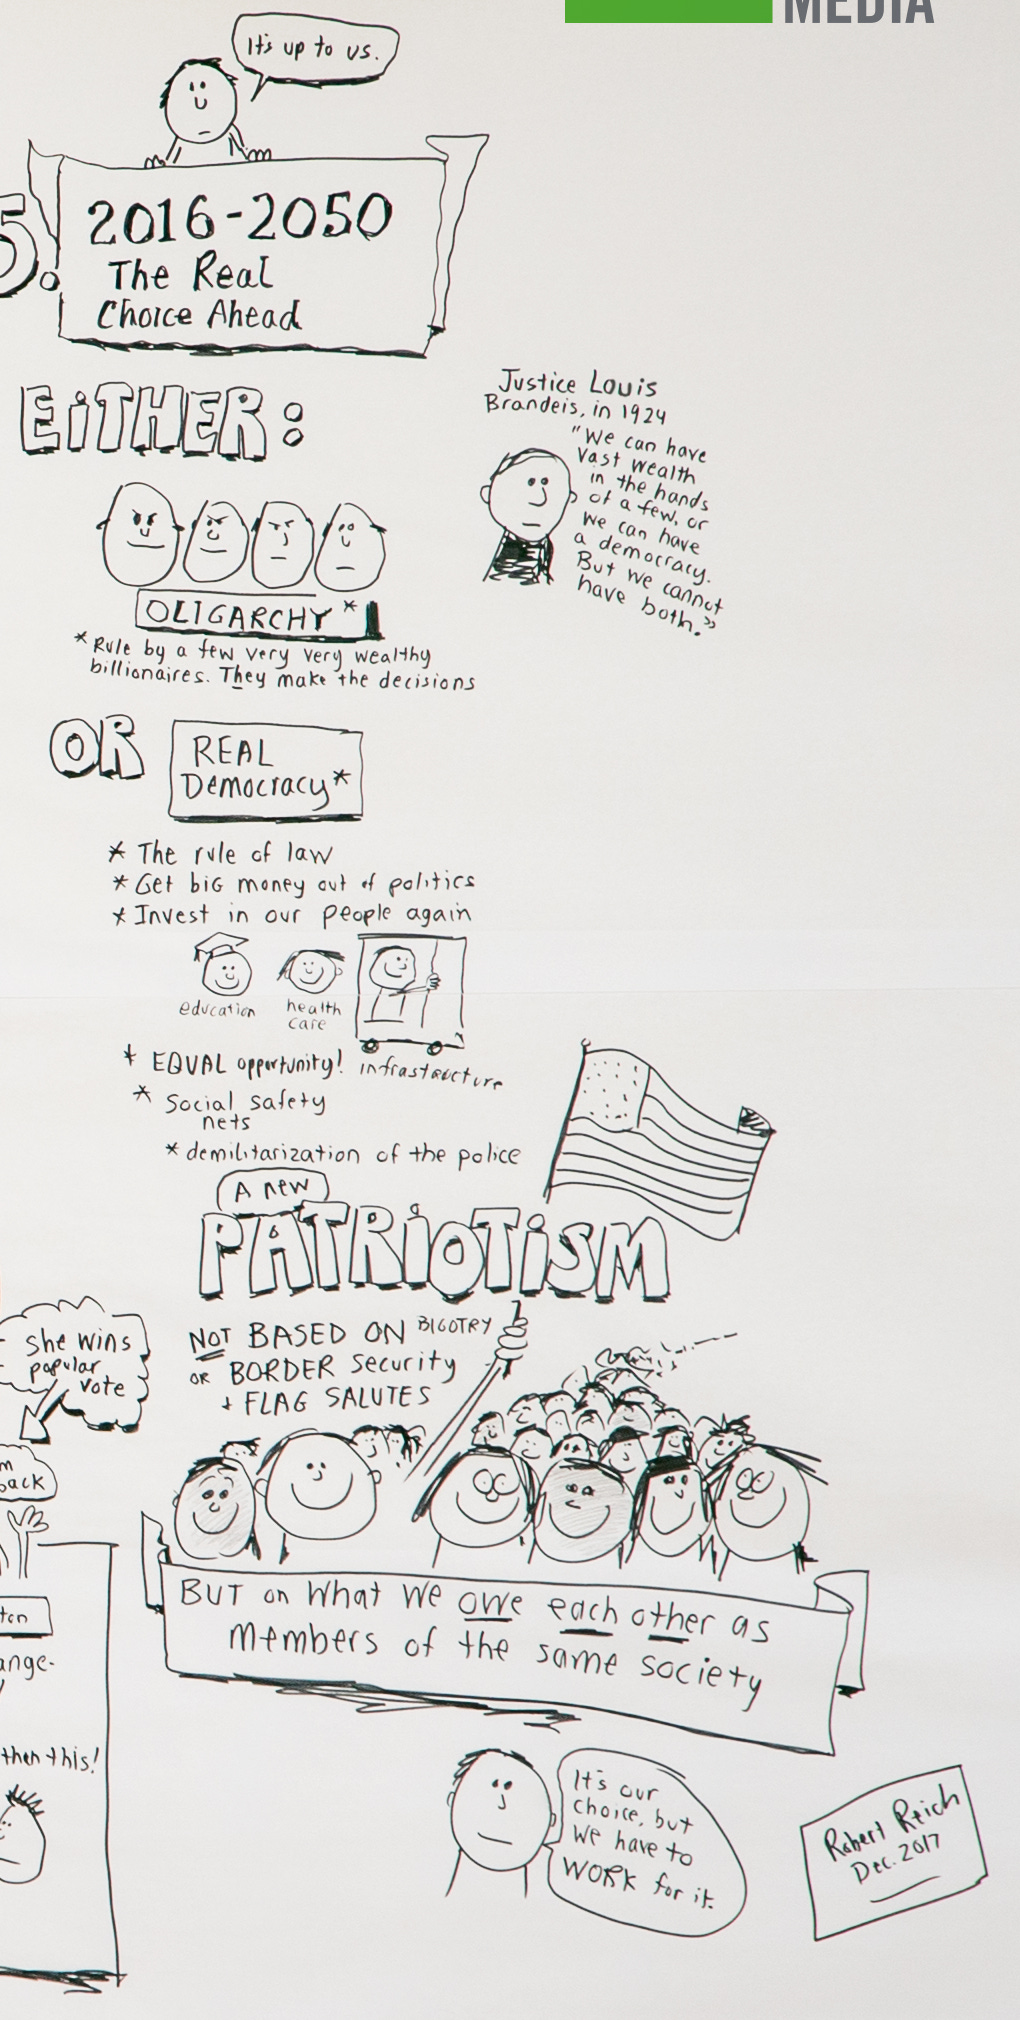 MEDIA
It's up to us.
5.
2016-2050
The Real
Choice Ahead
EiTHER:
Justice Louis
Brandeis, in 1924
"We can have
vast wealth
in the hands
of a few, or
we can have
a democracy.
But we cannot
have both."
OLIGARCHY *
* Rule by a few very very wealthy
billionaires. They make the decisions
OR
REAL
Democracy*
* The rule of law
* Get big money out of politics
* Invest in our people again
education
health
care
infrastructure
* EQUAL opportunity!
* Social safety
nets
* demilitarization of the police
A new
PATRiOTiSM
NOT BASED ON BIGOTRY
OR BORDER security
+ FLAG SALUTES
She wins
popular
vote
back
then this!
BUT on what we owe each other as
members of the same society
It's our
choice, but
we have to
WORK for it.
Robert Reich
Dec. 2017